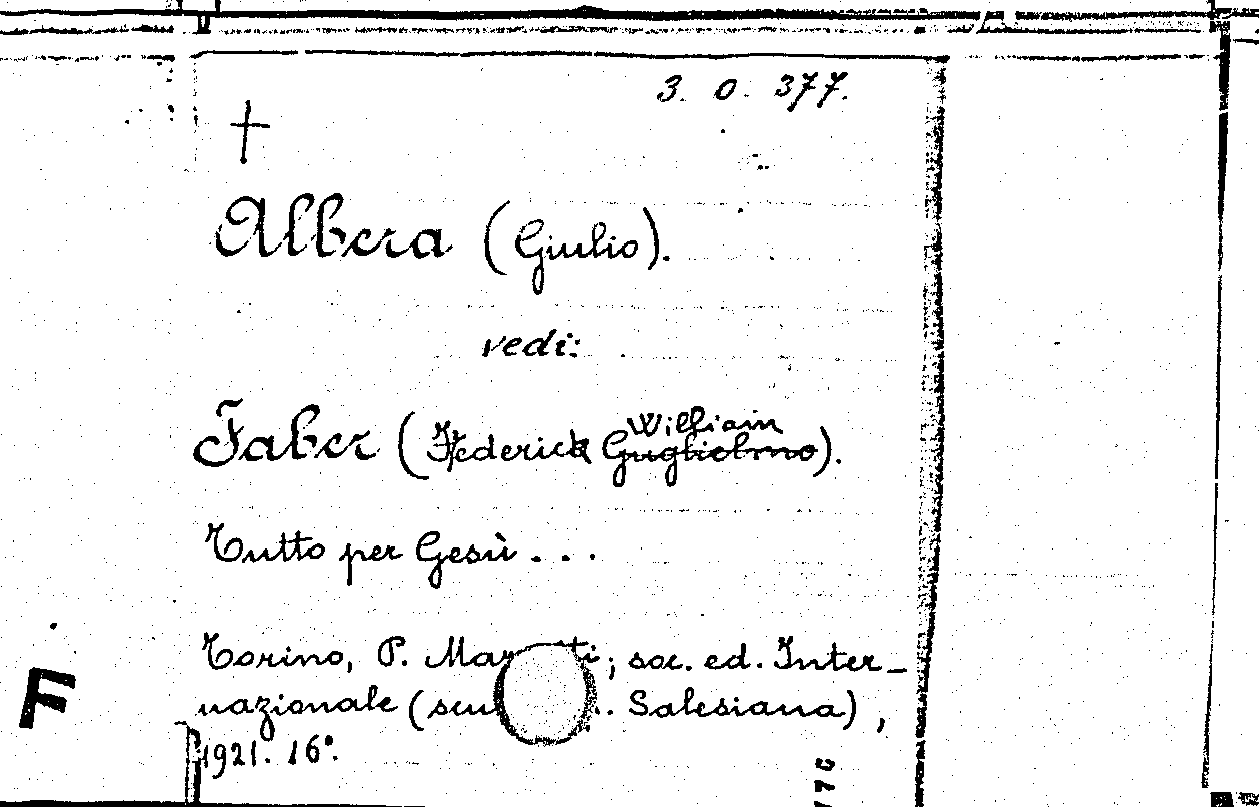 3. 0. 377.
†
Albera (Giulio).
vedi:
Faber (Federick William Guglielmo).
Tutto per Gesù . . .
Torino, P. ; soc. ed. Inter-
nazionale ( Salesiana),
1921. 16°.
F